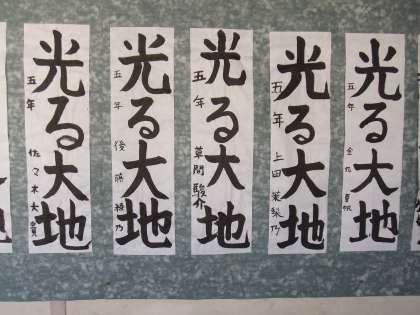 光る大地
五年 佐々木大貴
光る大地
五年 後藤綾乃
光る大地
五年 草間駿介
光る大地
五年 上田茉梨乃
光る大地
五年